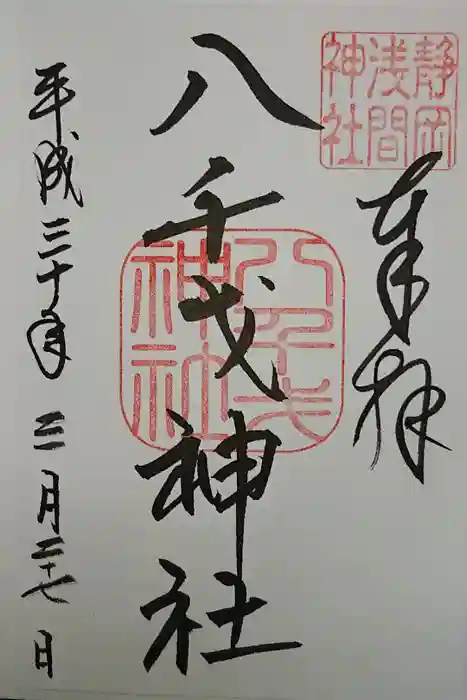 静岡
浅間
神社
奉拝
八千戈神社
八千戈
神社
平成三十年三月二十七日